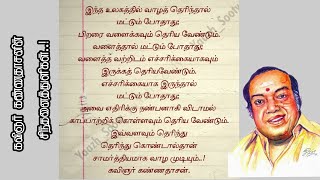 கவிஞர் கண்ணதாசன்
சிந்தனைத்துளி..!
இந்த உலகத்தில் வாழத் தெரிந்தால்
மட்டும் போதாது;
பிறரை வளைக்கவும் தெரிய வேண்டும்.
வளைத்தால் மட்டும் போதாது;
வளைத்த வற்றிடம் எச்சரிக்கையாகவும்
இருக்கத் தெரியவேண்டும்.
எச்சரிக்கையாக இருந்தால்
மட்டும் போதாது;
அவை எதிரிக்கு நண்பனாகி விடாமல்
காப்பாற்றிக் கொள்ளவும் தெரிய வேண்டும்.
இவ்வளவும் தெரிந்து
தெரிந்து கொண்டால்தான்
சாமர்த்தியமாக வாழ முடியும்..!
கவிஞர் கண்ணதாசன்.